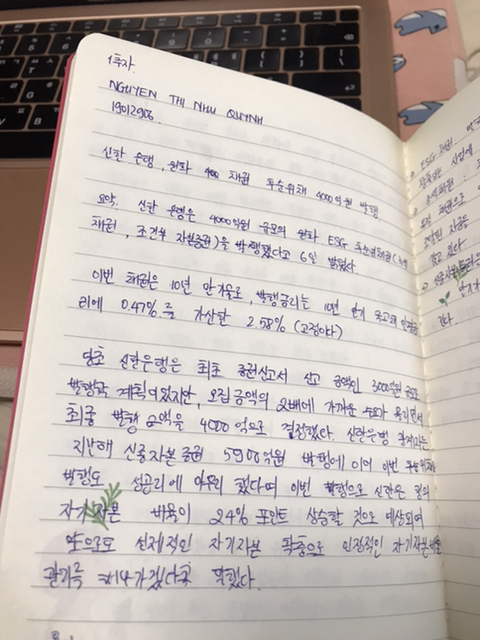 1주차.
NGUYEN THI NHU QUYNH
19012906.
신한 은행, 원화 채권 후순위채 4000억원 발행.
요약. 신한 은행은 4000억원 규모의 원화 ESG 후순위채권(
채권, 조건부 자본증권)을 발행했다고 6일 밝혔다.
이번 채권은 10년 만기로, 발행금리는 10년 만기
리에 0.47%를 가산한 2.58% (고정이다)
당초 신한은행은 최초 증권신고서 신고 금액인 3000억원
발행을 계획이었지만, 모집금액의 2배에 가까운 수요가 몰리면서
최종 발행 금액을 4000억으로 결정했다. 신한은행 관계자는
지난해 신종자본증권 5900억원 발행에 이어 이번
발행도 성공리에 마무리 했다며 이번 발행으로 신한은행의
자기자본 비율이 24% 포인트 상승할 것으로 예상되며
앞으로도 선제적인 자기자본 확충으로 안정적인 자기자본
관리를 해나가겠다고 말했다.
ESG 채권.
사업에
자금을
있다